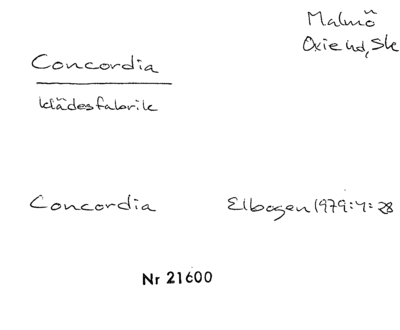 Malmö
Oxie hd, Sk
Concordia
klädesfabrik
Concordia Elbogen 1979:4:28
Nr 21600